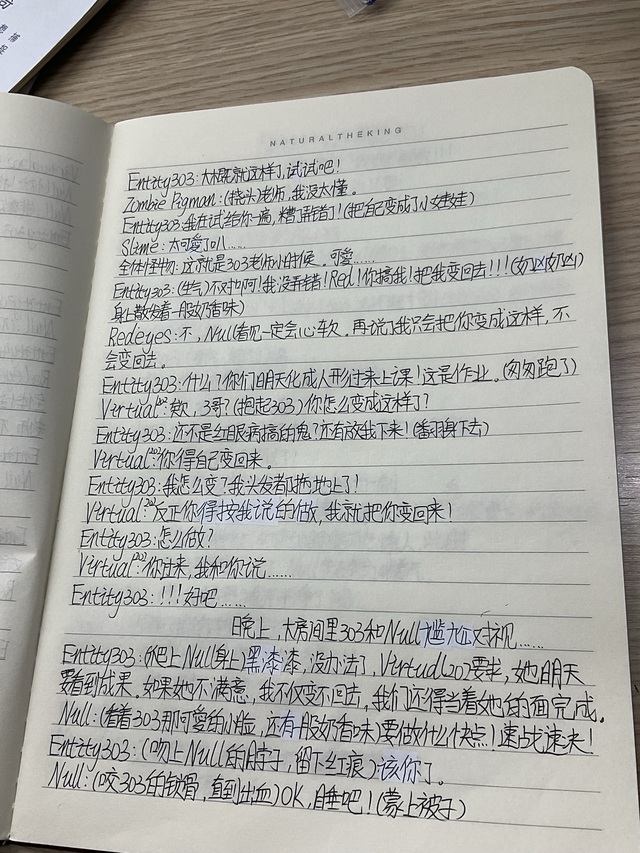 NATURALTHEKING
Entity303:大概就这样了,试试吧!
Zombie Pigman:(挠头)老师,我没太懂。
Entity303:我在试给你一遍,糟了弄错了!(把自己变成了小娃娃)
Slime:太可爱了叭……
全体怪物:这就是303老师小时候。可爱……
Entity303:(生气)不对啊!我没弄错!Red!你搞我!把我变回去!!!(奶凶奶凶)
身上散发着一股奶香味)
Redeyes:不,Null看见一定会心软。再说了我只会把你变成这样,不
会变回去。
Entity303:什么?你们明天化成人形过来上课!这是作业。(匆匆跑了)
Virtual²⁰²:欸,3哥?(抱起303)你怎么变成这样了?
Entity303:还不是红眼病搞的鬼?还有放我下来!(翻身下去)
Virtual²⁰²:你得自己变回来。
Entity303:我怎么变?我头发都拖地上了!
Virtual²⁰²:反正你得按我说的做,我就把你变回来!
Entity303:怎么做?
Virtual²⁰²:你过来,我和你说……
Entity303:!!!好吧……
晚上,大房间里303和Null尴尬对视……
Entity303:(爬上Null身上)黑漆漆,没办法了,Virtual202要求,她明天
要看到成果。如果她不满意,我不仅变不回去,我们还得当着她的面完成。
Null:(看着303那可爱的小脸,还有一股奶香味)要做什么快点!速战速决!
Entity303:(吻上Null的脖子,留下红痕)该你了。
Null:(咬303的锁骨,直到出血)OK,睡吧!(蒙上被子)